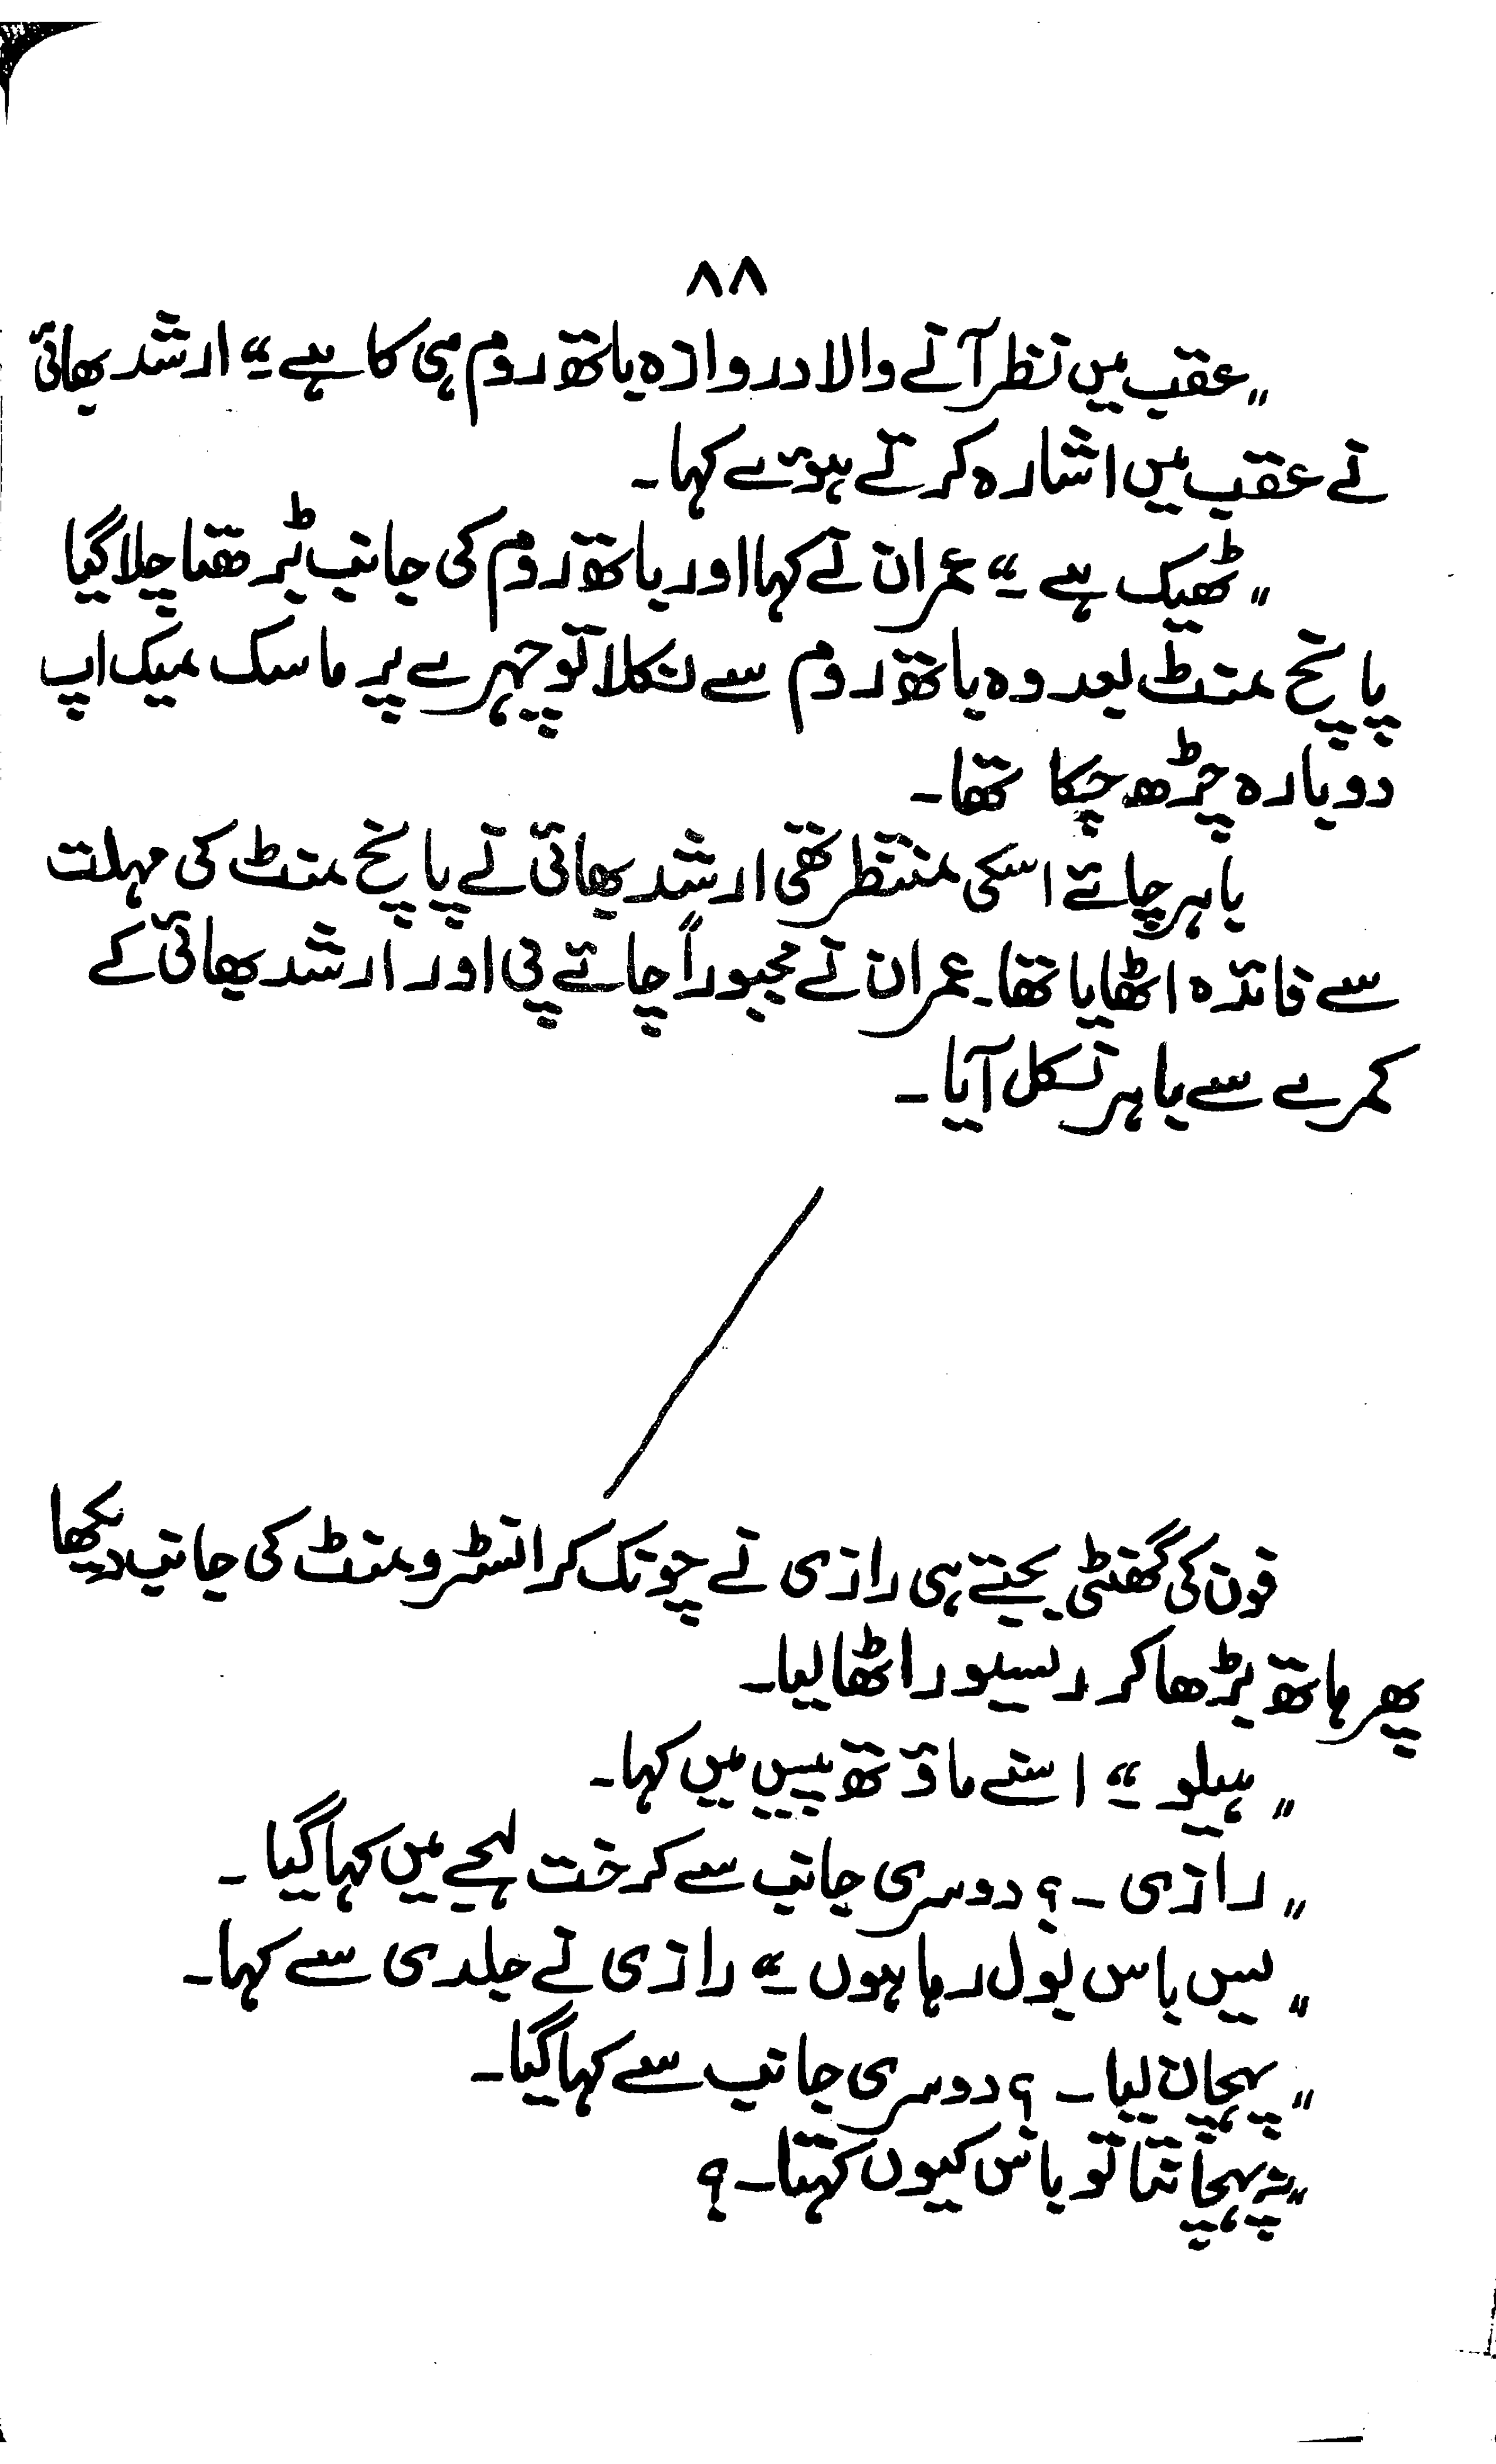 ۸۸
"عقب میں نظر آنے والا دروازہ باتھ روم ہی کا ہے۔" ارشد بھائی
نے عقب میں اشارہ کرتے ہوئے کہا۔
"ٹھیک ہے۔" عمران نے کہا اور باتھ روم کی جانب بڑھتا چلا گیا
پانچ منٹ بعد وہ باتھ روم سے نکلا تو چہرے پر ماسک میک اپ
دوبارہ چڑھ چکا تھا۔
باہر چائے اسکی منتظر تھی ارشد بھائی نے پانچ منٹ کی مہلت
سے فائدہ اٹھایا تھا۔ عمران نے مجبوراً چائے پی اور ارشد بھائی کے
کمرے سے باہر نکل آیا۔
فون کی گھنٹی بجتے ہی رازی نے چونک کر انسٹرومنٹ کی جانب دیکھا
پھر ہاتھ بڑھا کر رسیور اٹھا لیا۔
"ہیلو۔" اسنے ماؤتھ پیس میں کہا۔
"رازی۔؟ دوسری جانب سے کرخت لہجے میں کہا گیا۔
"یس باس بول رہا ہوں۔" رازی نے جلدی سے کہا۔
"پہچان لیا۔؟ دوسری جانب سے کہا گیا۔
"نہ پہچانتا تو باس کیوں کہتا۔؟